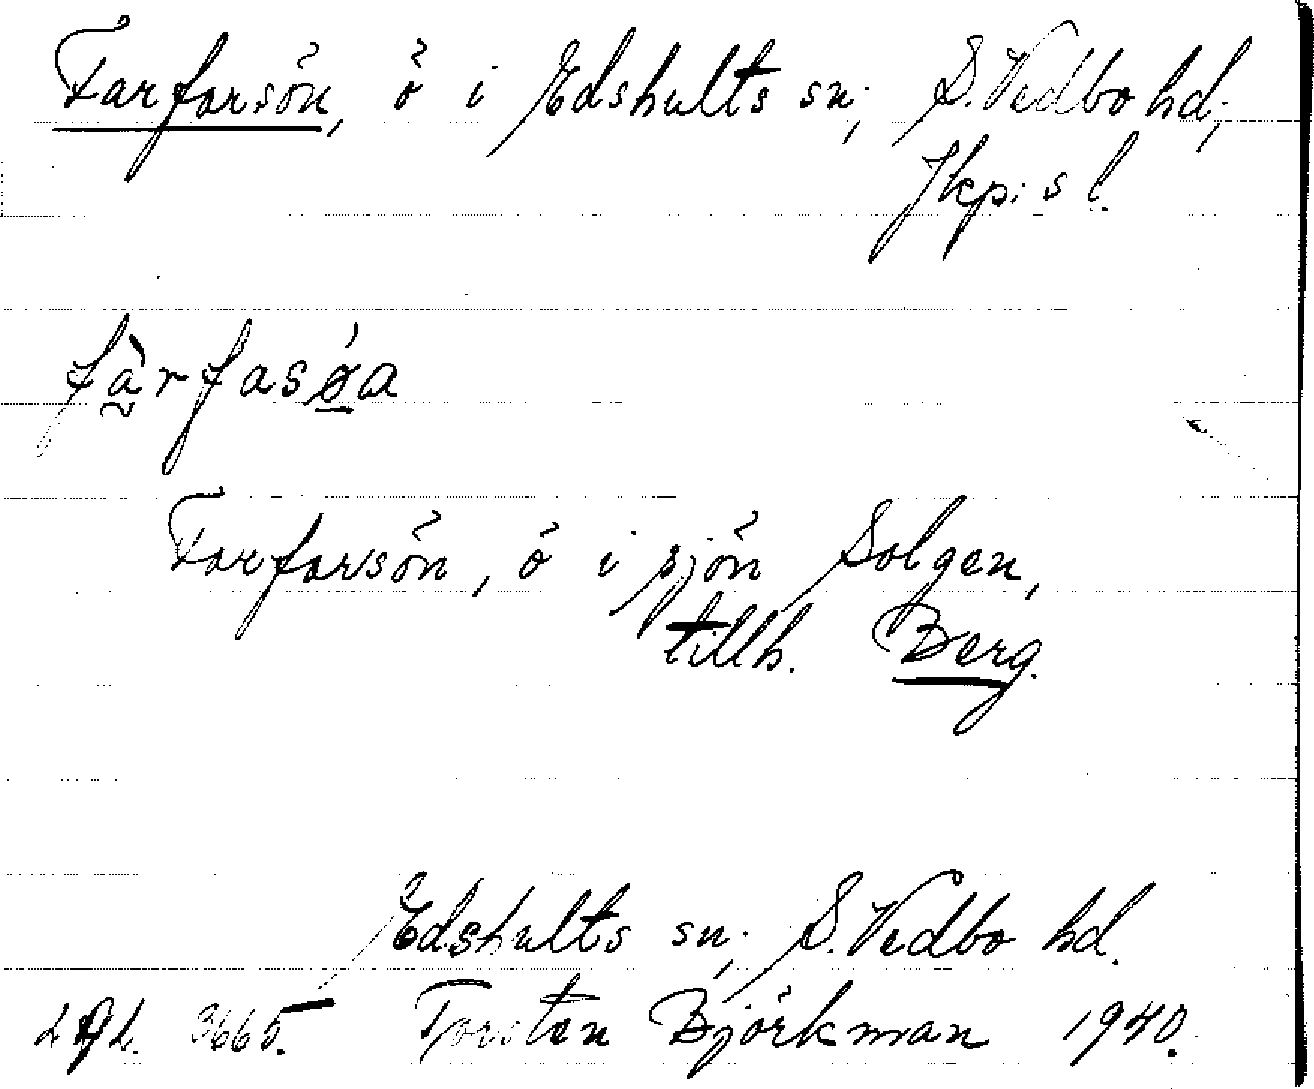 Farfarsön, ö i Edshults sn; S. Vedbo hd;
Jkp:s l.
fàrfasǿa
Farfarsön, ö i sjön Solgen,
tillh. Berg.
Edshults sn; S. Vedbo hd.
3665. Torsten Björkman 1940.